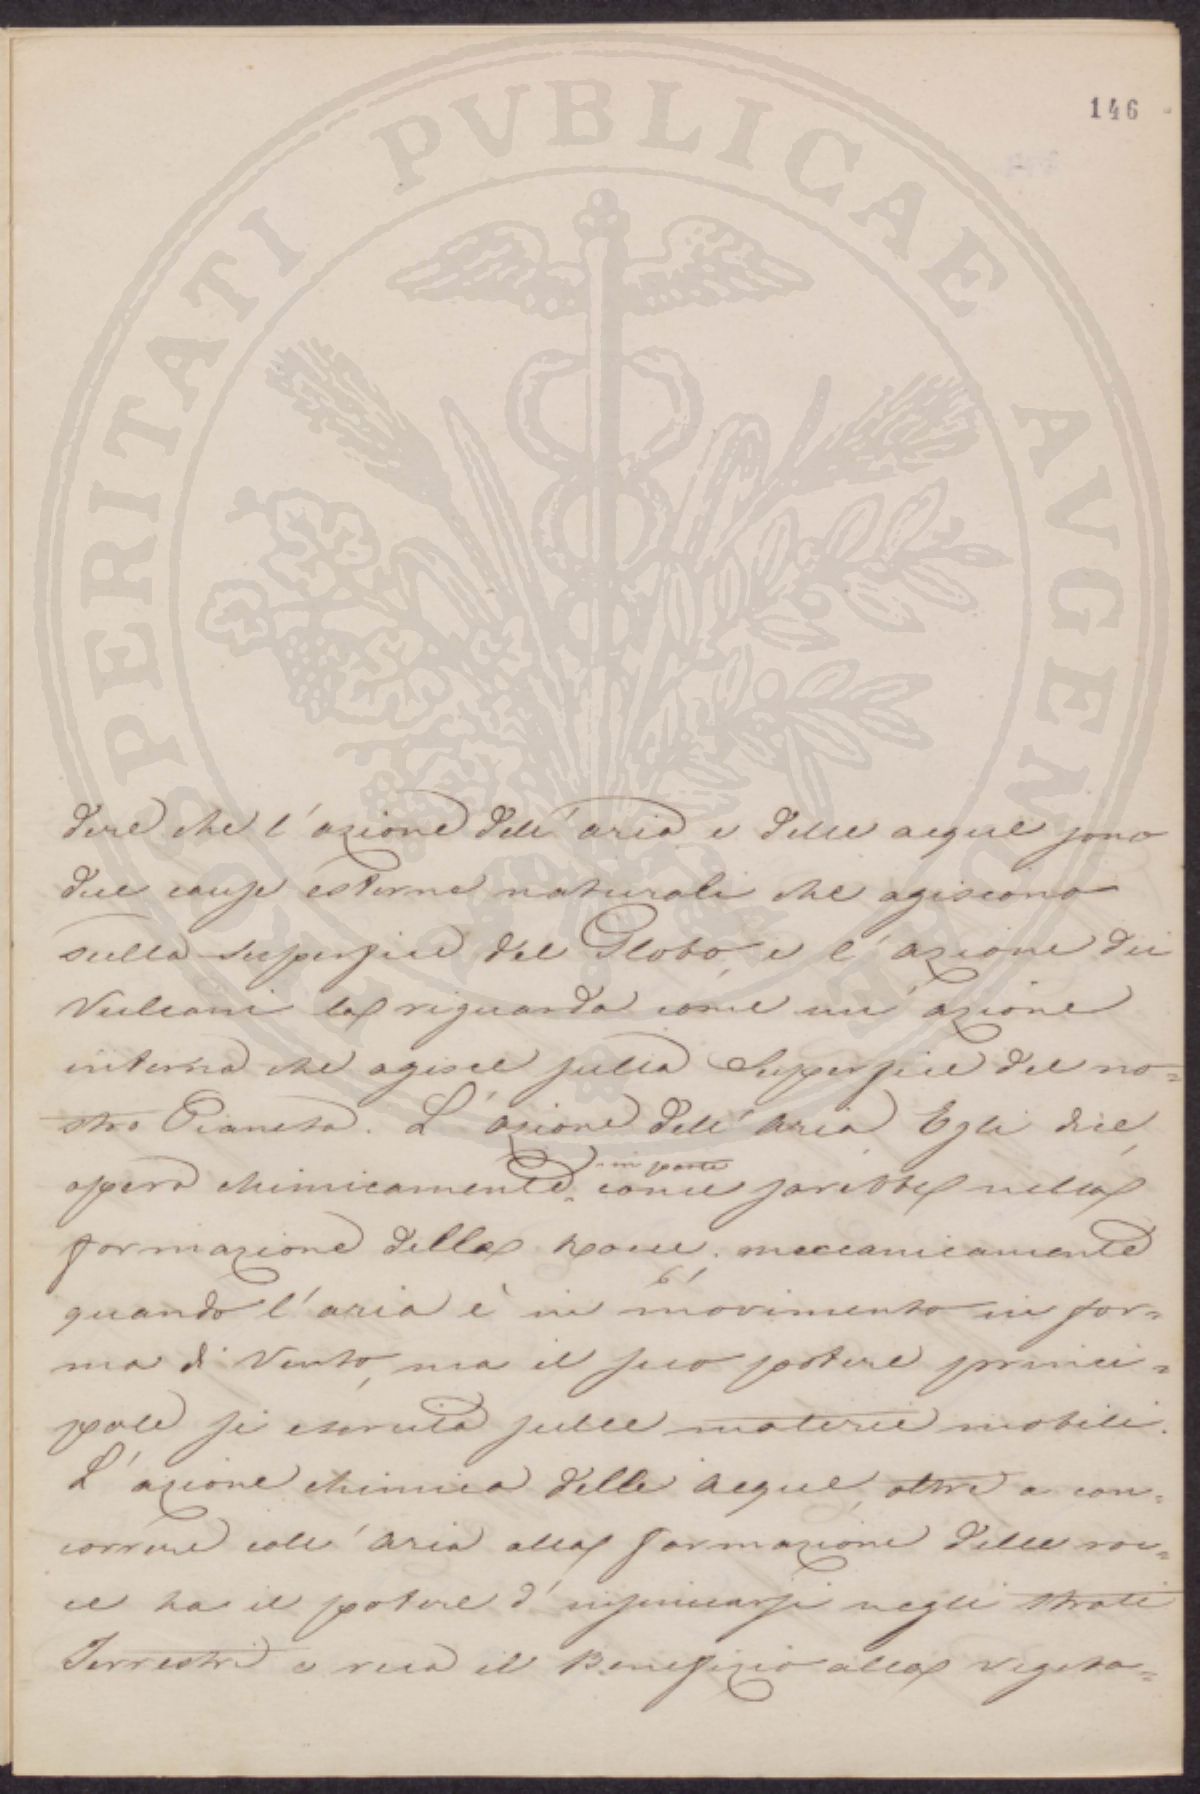 146
PROSPERITATI PVBLICAE AVGENDAE
dere che l'azione dell'aria e delle acque sono
due cause esterne naturali che agiscono
sulla Superfice del Globo, e l'azione dei
Vulcani la riguarda come un'azione
interna che agisce sulla Superfice del no=
stro Pianeta. L'azione dell'Aria Egli dice,
in parte
opera chimicamente come sarebbe nella
formazione della rocce; meccanicamente
quando l'aria è in movimento in for=
ma di Vento, ma il suo potere princi=
pale si esercita sulle materie mobili.
L'azione chimica delle Acque, oltre a con=
correre coll'Aria alla formazione delle roc=
ce ha il potere d'insinuarsi negli strati
Terrestri e reca il Benefizio alla vegeta=